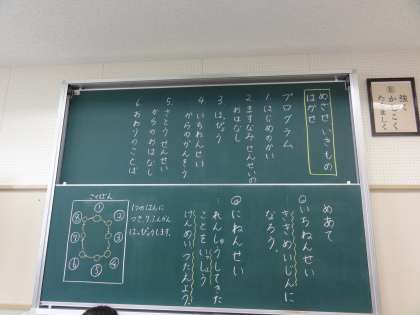 めざせ いきもの
はかせ
プログラム
1、はじめのかい
2、ますなみせんせいの
おはなし
3、はっぴょう
4、いちねんせい
からのかんそう
5、さとうせんせい
からのおはなし
6、おわりのことば
めあて
◎いちねんせい
ききめいじんに
なろう。
◎にねんせい
れんしゅうしてきた
ことをいっしょう
けんめいつたえよう
1つのはんに
つき7ふんかん
はっぴょうします。
こくばん
①
②
③
④
⑤
⑥
⑦
⑧
かしこく
たくましく